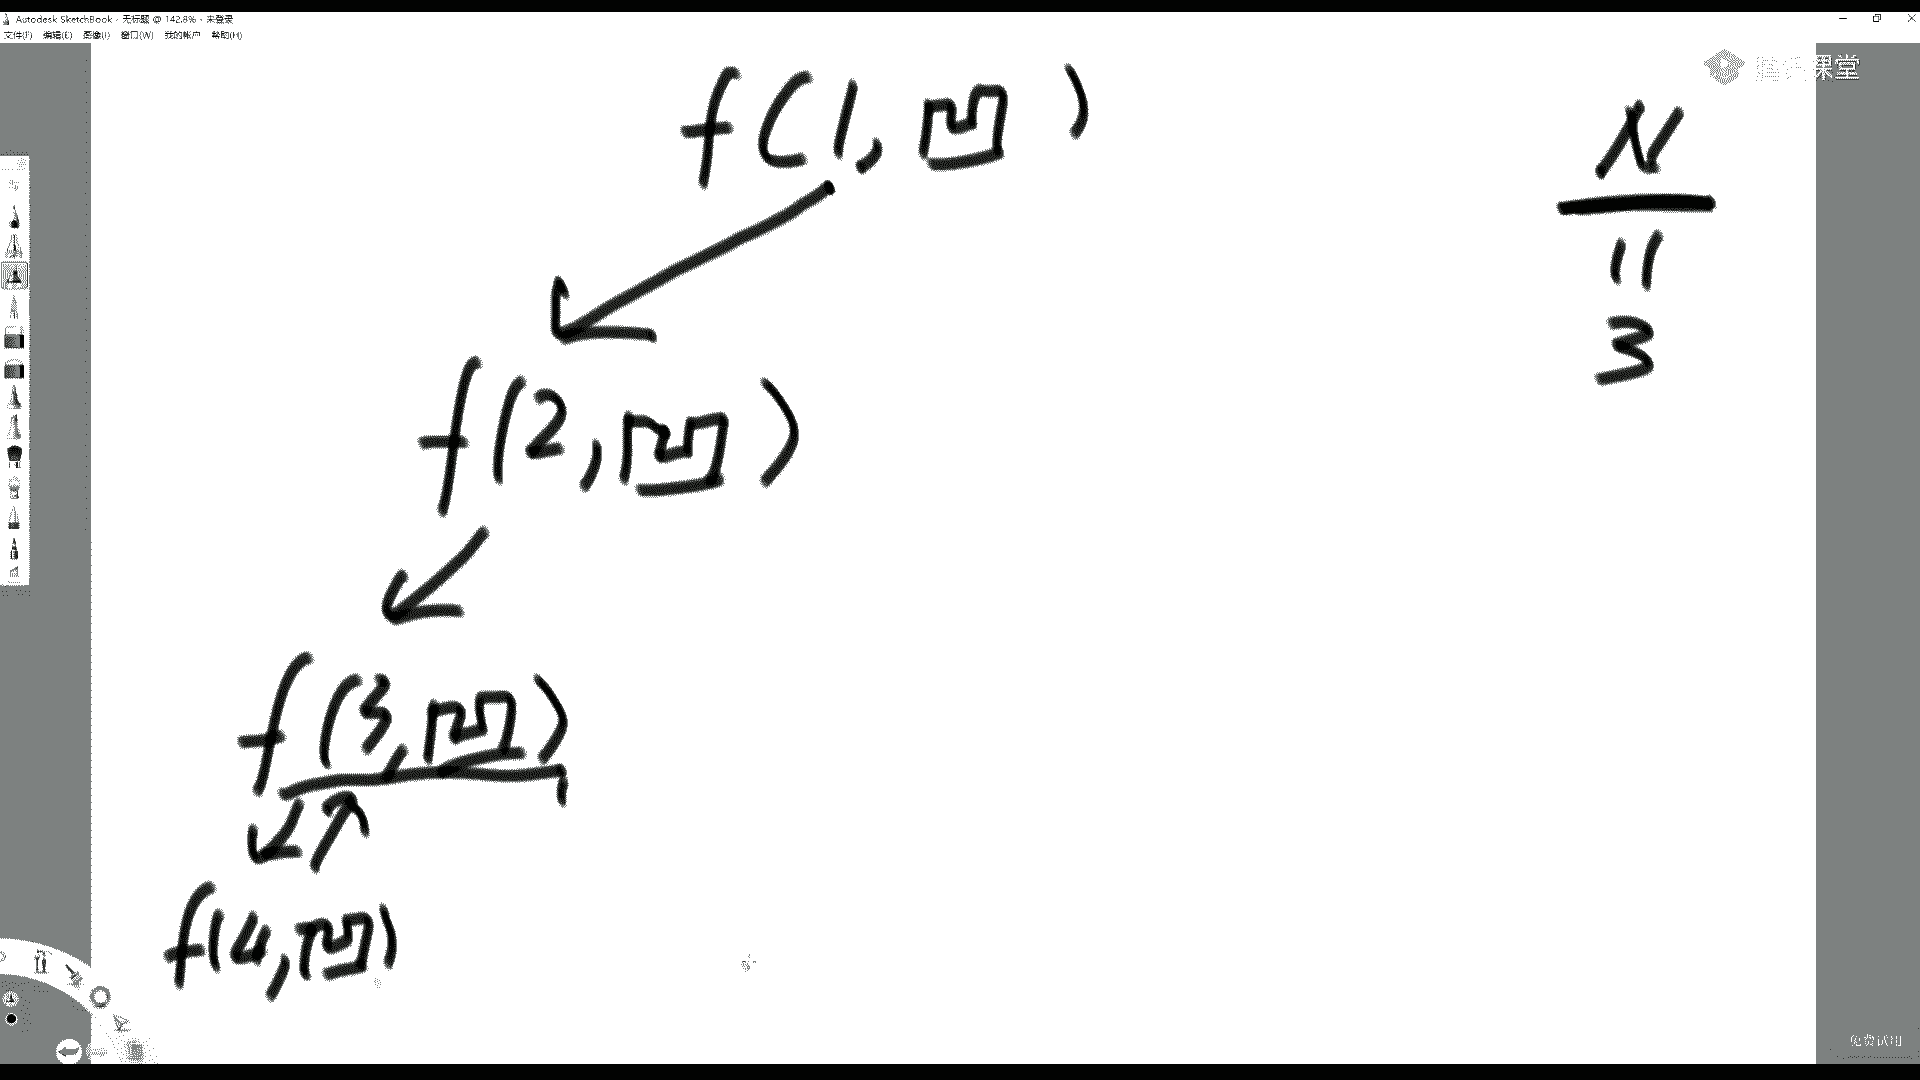 Autodesk SketchBook - 无标题 @ 142.8% - 未登录
文件(F) 编辑(E) 图像(I) 窗口(W) 我的帐户 帮助(H)
腾讯课堂
f(1, 凹)
N
=
3
f(2, 凹)
f(3, 凹)
f(4, 凹)
免费试用